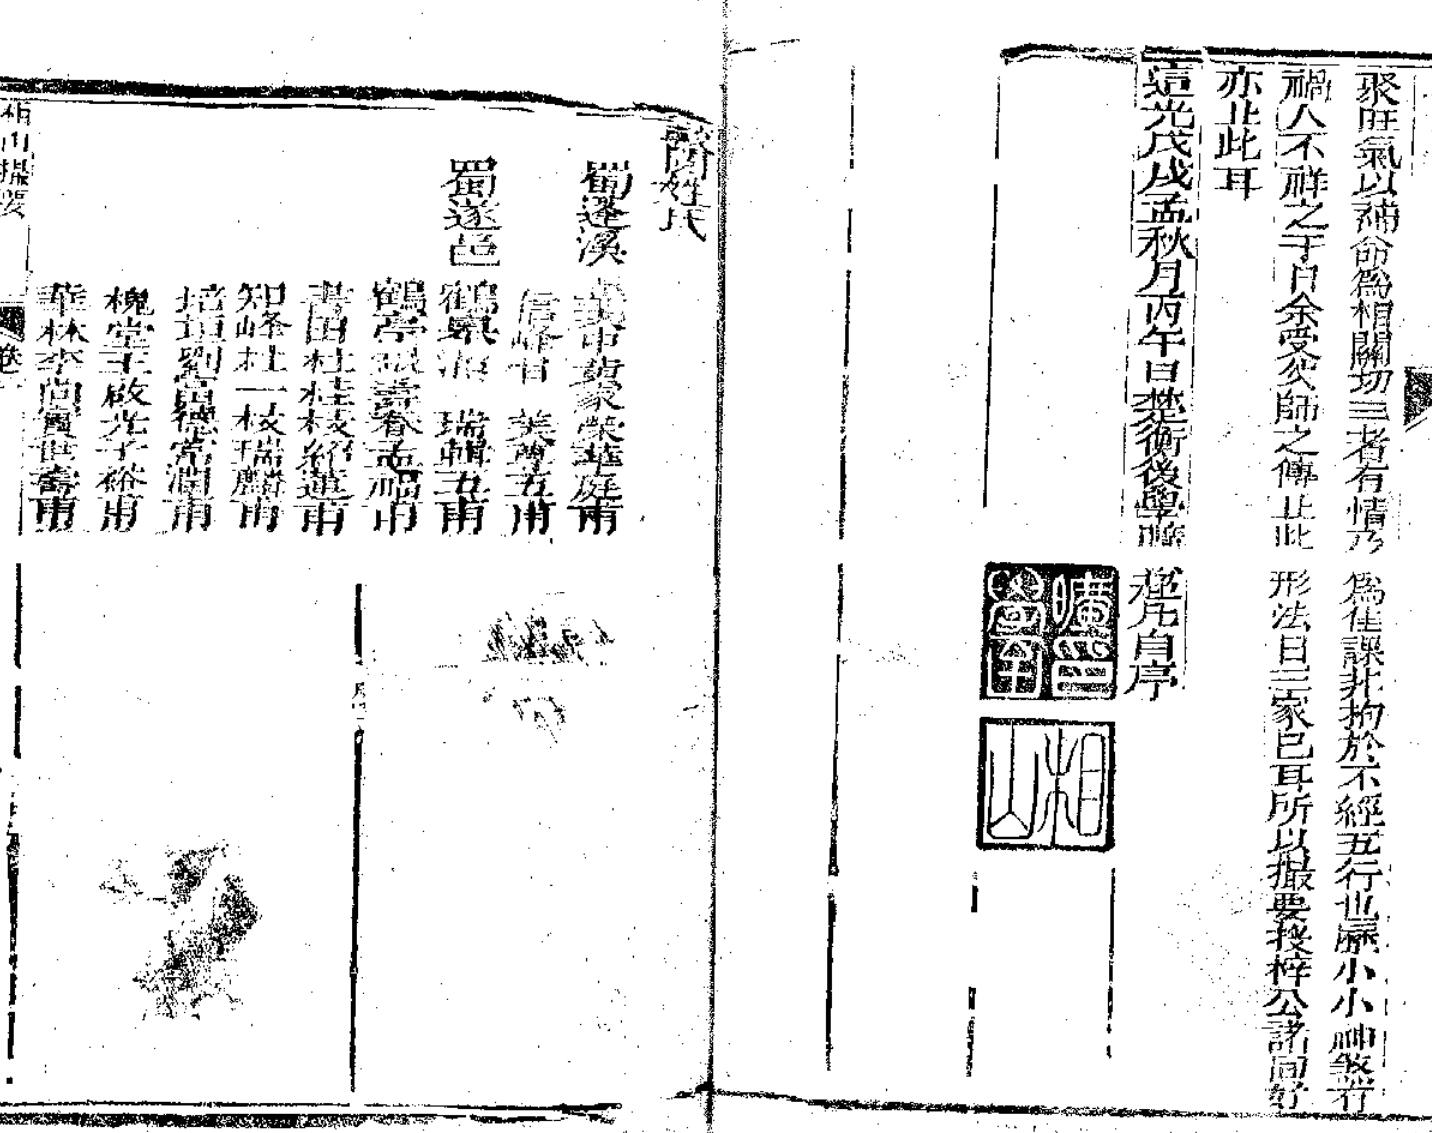 聚旺氣以補命為相關切三者有情乃為佳課非拘於不經五行也歷小小神煞行
禍人不祥之干日余受於師之傳止此形法日三家已耳所以撮要授梓公諸同好
亦止此耳
道光戊戌孟秋月丙午日楚衡後學曠 超凡自序
相山
姓氏
蜀蓬溪
榮華庭甫
信峰 美尊五甫
蜀遂邑
鶴泉 瑞輯五甫
鶴亭 壽春孟福甫
書田杜桂枝紹蓮甫
知峰杜一枝瑞麟甫
培垣劉富德常潤甫
槐堂王啟光子裕甫
華林李尚賓世壽甫
相山撮要
卷